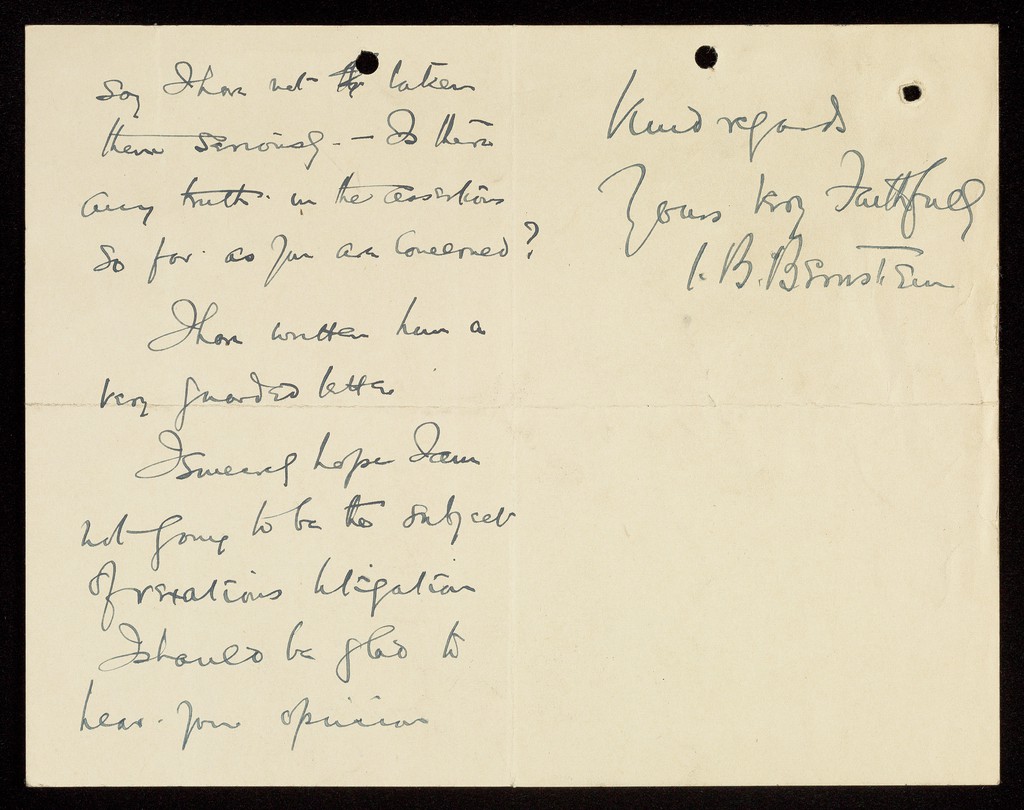 say I have not taken
them seriously. — Is there
any truth in the assertions
so far as you are concerned?
I have written him a
very guarded letter
I sincerely hope I am
not going to be the subject
of vexatious litigation
I should be glad to
hear your opinion
Kind regards
Yours very Faithfully
I. B. Bernstein